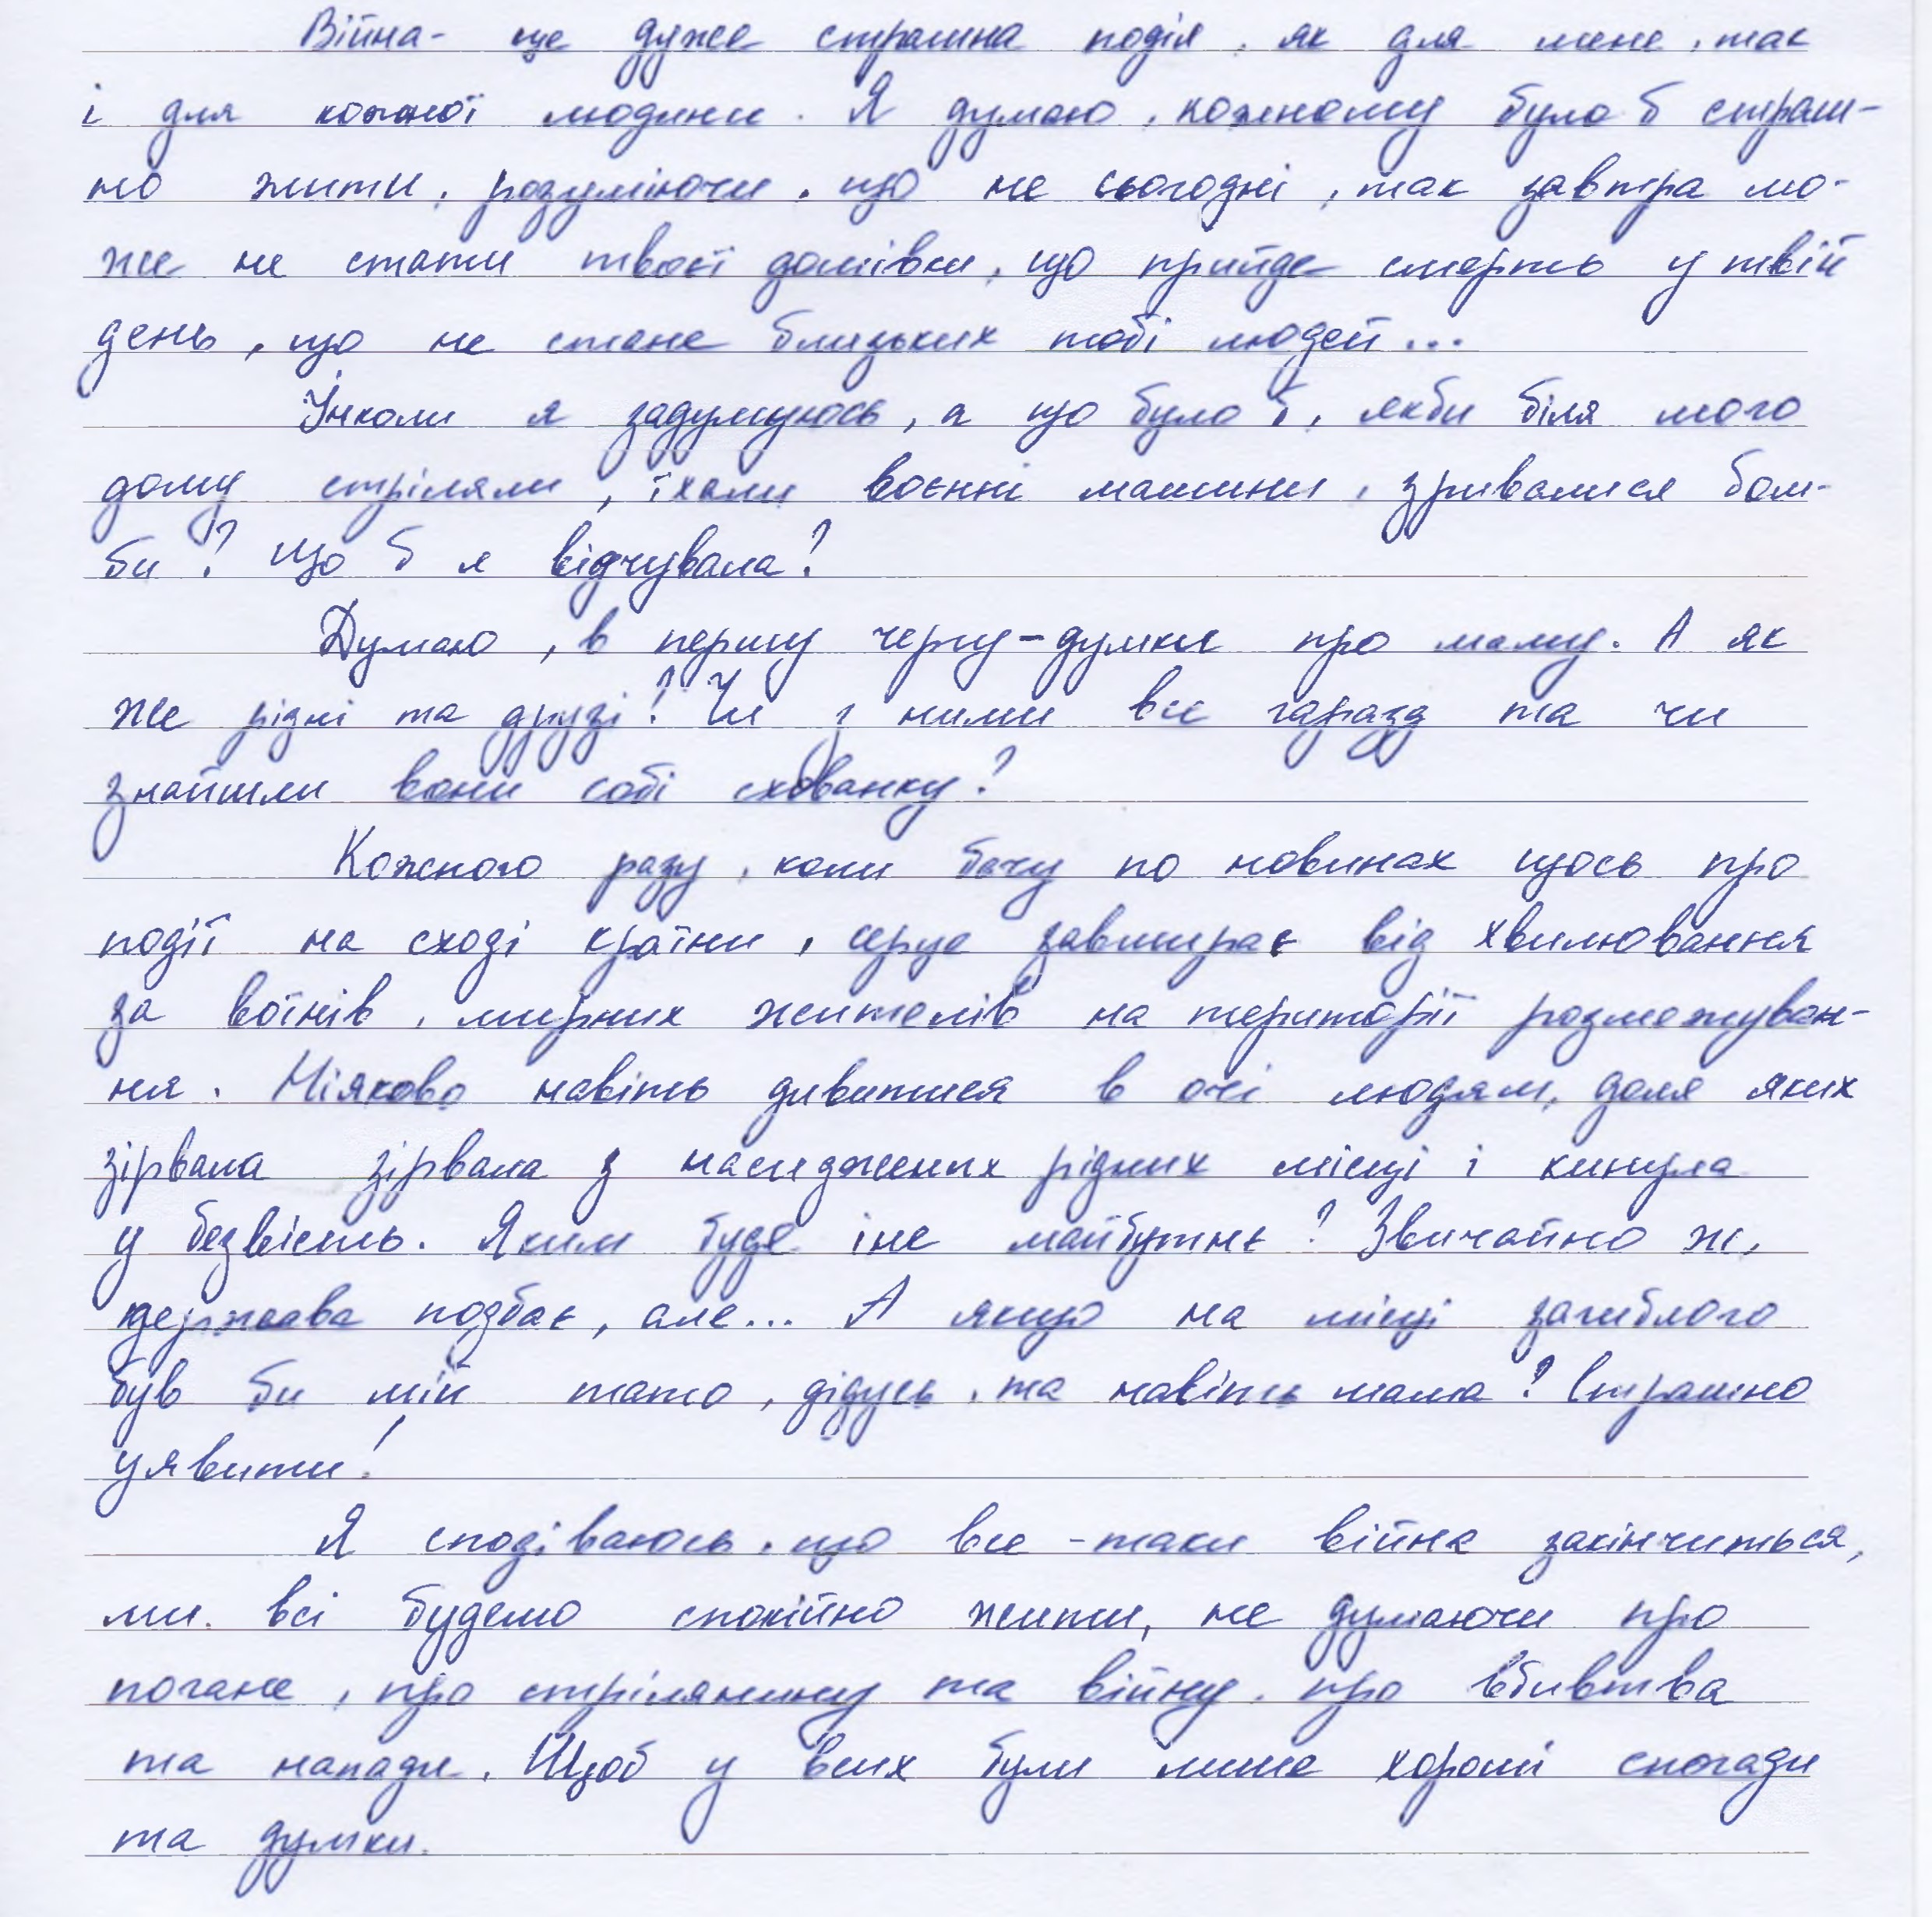 Війна - це дуже страшна подія, як для мене, так
і для кожної людини. Я думаю, кожному було б страш-
но жити, розуміючи, що не сьогодні, так завтра мо-
же не стати твоєї домівки, що прийде смерть у твій
день, що не стане близьких тобі людей...
Інколи я задумуюсь, а що було б, якби біля мого
дому стріляли, їхали воєнні машини, зривалися бом-
би? Що б я відчувала?
Думаю, в першу чергу - думки про маму. А як
же рідні та друзі? Чи з ними все гаразд та чи
знайшли вони собі схованку?
Кожного разу, коли бачу по новинах щось про
події на сході країни, серце завмирає від хвилювання
за воїнів, мирних жителів на території розмежуван-
ня. Ніяково навіть дивитися в очі людям, доля яких
зірвала зірвала з насиджених рідних місць і кинула
у безвість. Яким буде їне майбутнє? Звичайно ж,
держава подбає, але... А якщо на місці загиблого
був би мій тато, дідусь, та навіть мама? Страшно
уявити!
Я сподіваюсь, що все-таки війна закінчиться,
ми всі будемо спокійно жити, не думаючи про
погане, про стрілянину та війну, про вбивтва
та напади. Щоб у всіх були лише хороші спогади
та думки.